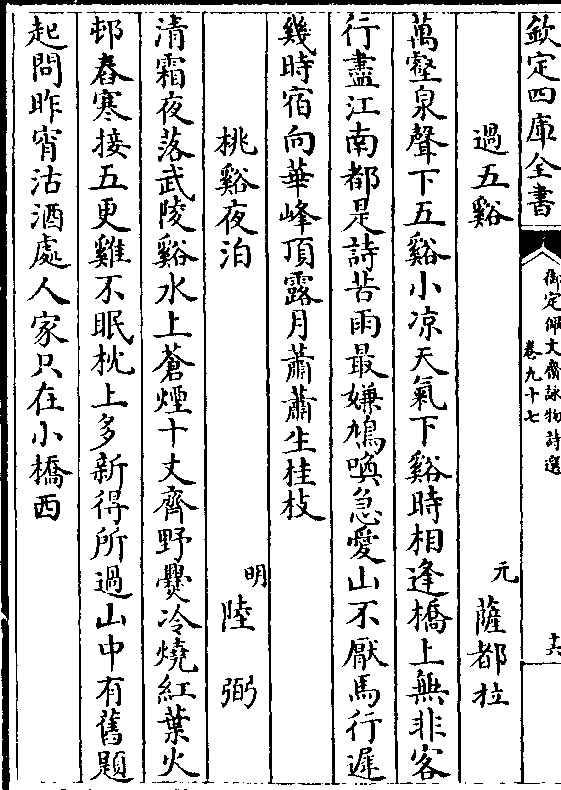 欽定四庫全書
御定佩文齋詠物詩選
卷九十七
十六
過五谿
元
薩都拉
萬壑泉聲下五谿小凉天氣下谿時相逢橋上無非客
行盡江南都是詩苦雨最嫌鳩喚急愛山不厭馬行遲
幾時宿向華峰頂露月蕭蕭生桂枝
桃谿夜泊
明
陸弼
清霜夜落武陵谿水上蒼煙十丈齊野爨冷燒紅葉火
邨舂寒接五更雞不眠枕上多新得所過山中有舊題
起問昨宵沽酒處人家只在小橋西